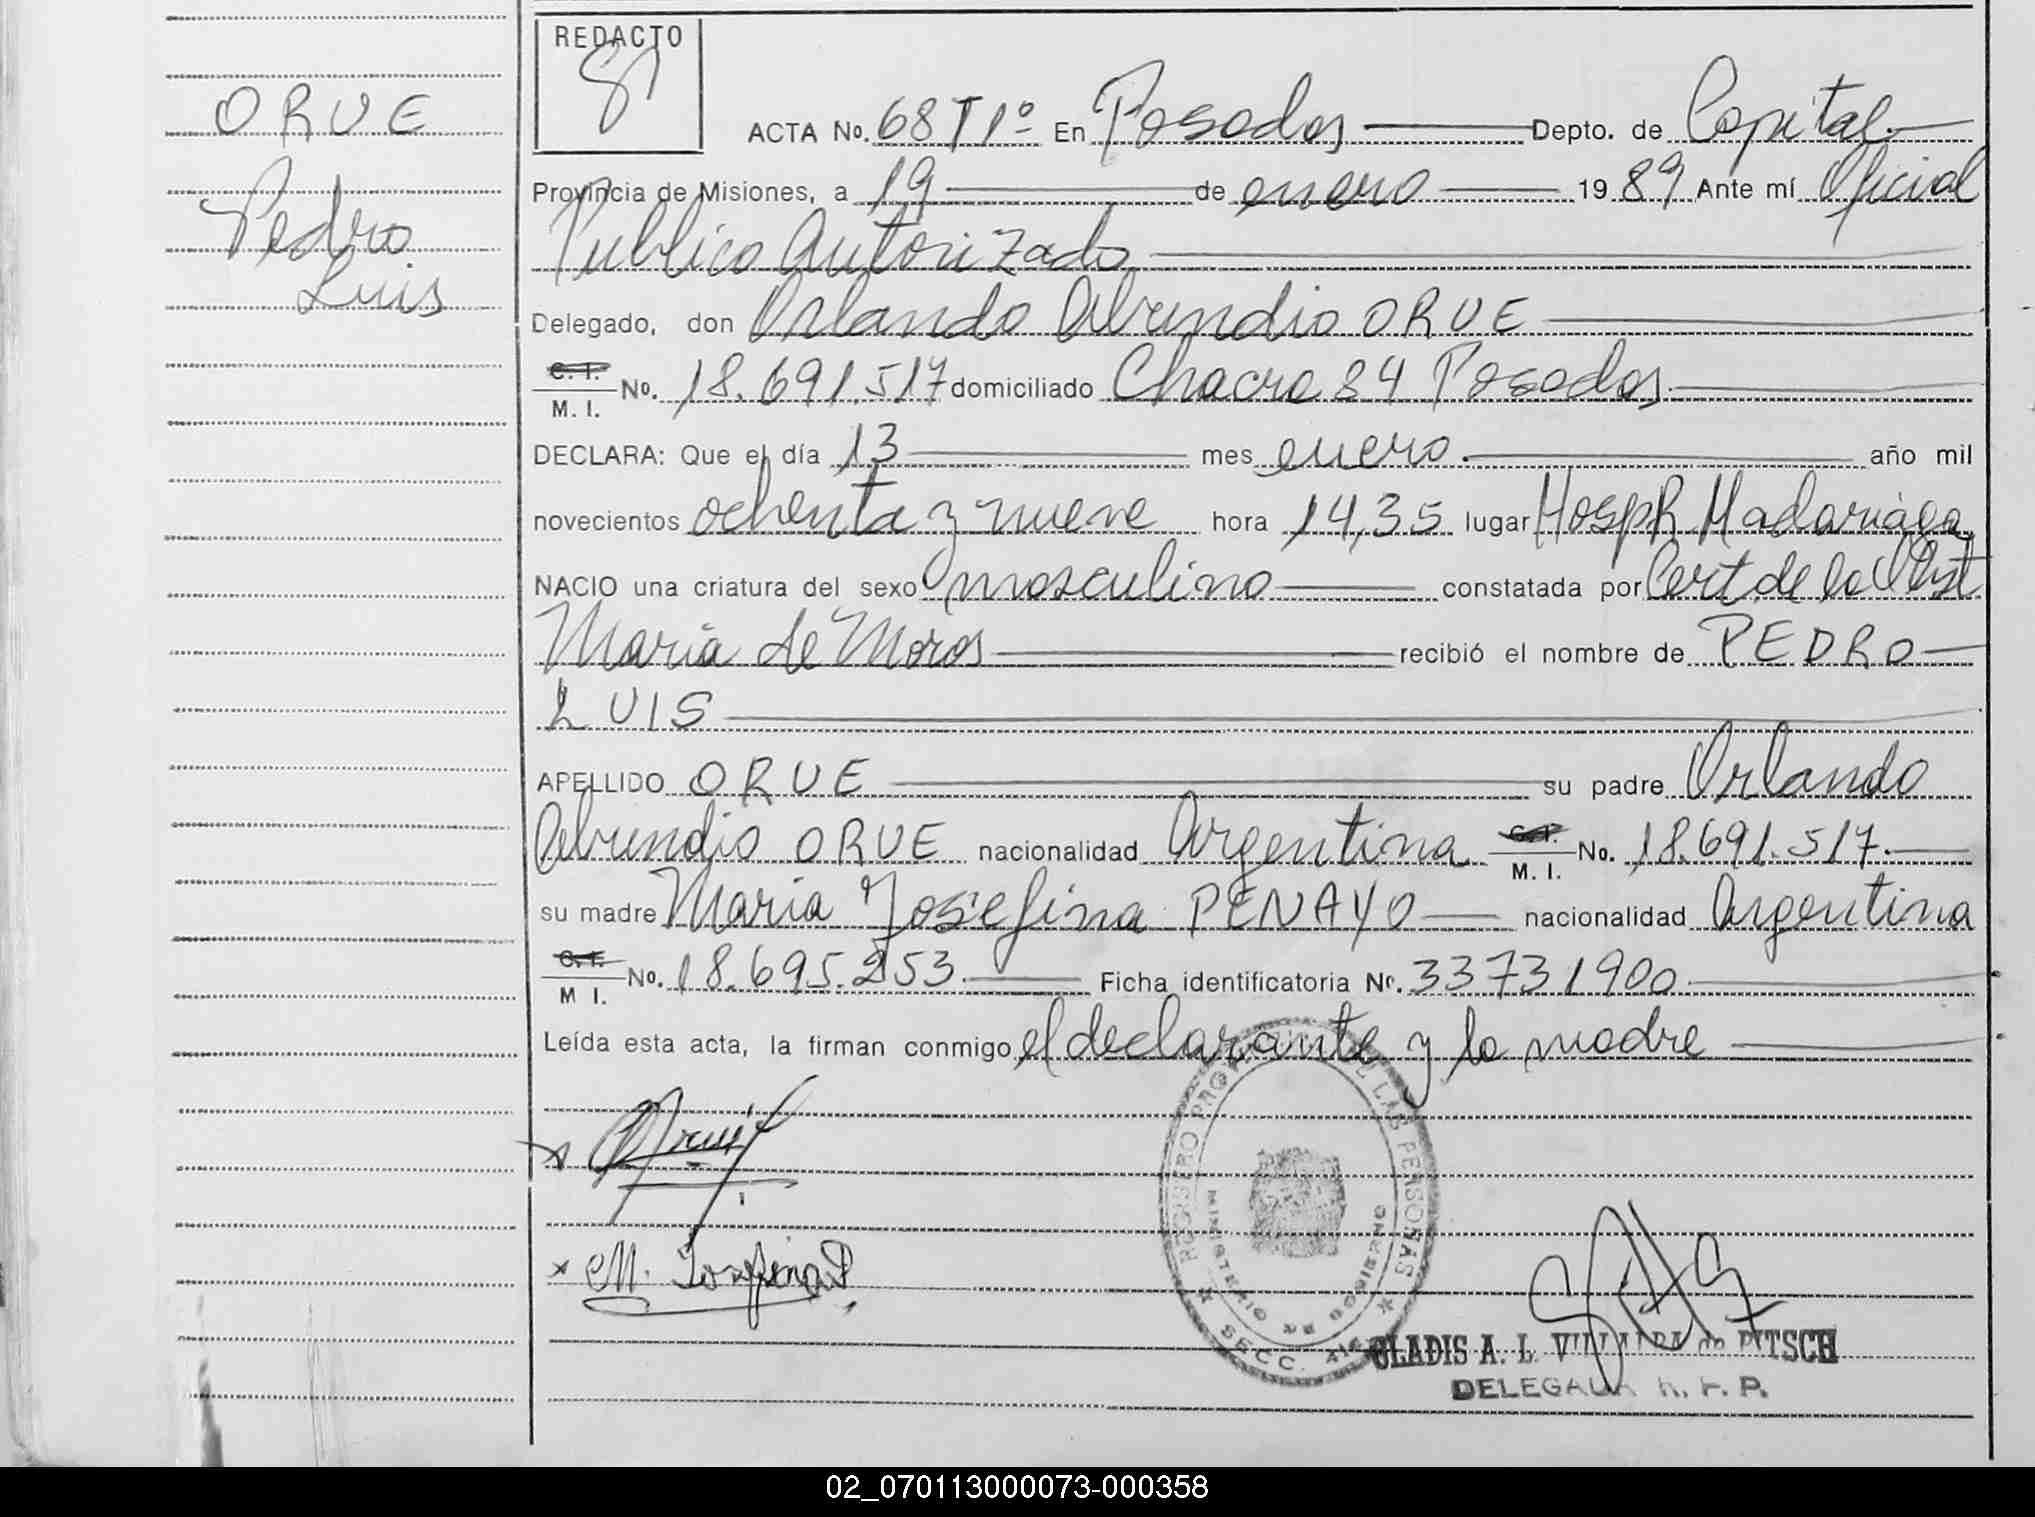 ORUE
Pedro
Luis
REDACTO
ACTA No. 68 T 1º En Posadas Depto. de Capital
Provincia de Misiones, a 19 de enero 1989 Ante mí Oficial
Publico Autorizado
Delegado, don Orlando Abundio ORUE
C. I. M. I. No. 18.691.517 domiciliado Chacra 84 Posadas
DECLARA: Que el día 13 mes enero. año mil
novecientos ochenta y nueve hora 14,35 lugar Hosp R. Madariaga
NACIO una criatura del sexo masculino constatada por Cert de la Obst
Maria de Moros recibió el nombre de PEDRO
LUIS
APELLIDO ORUE su padre Orlando
Abundio ORUE nacionalidad Argentina C. I. M. I. No. 18.691.517.
su madre Maria Josefina PENAYO nacionalidad Argentina
C. I. M I. No. 18.695.253. Ficha identificatoria Nr. 33731900
Leída esta acta, la firman conmigo el declarante y la madre
x
x M. Josefina P
REGISTRO PROV. DE LAS PERSONAS
MINISTERIO DE GOBIERNO
SECC.
GLADIS A. L. VILLALBA de PITSCH
DELEGADA R. P. P.
02_070113000073-000358